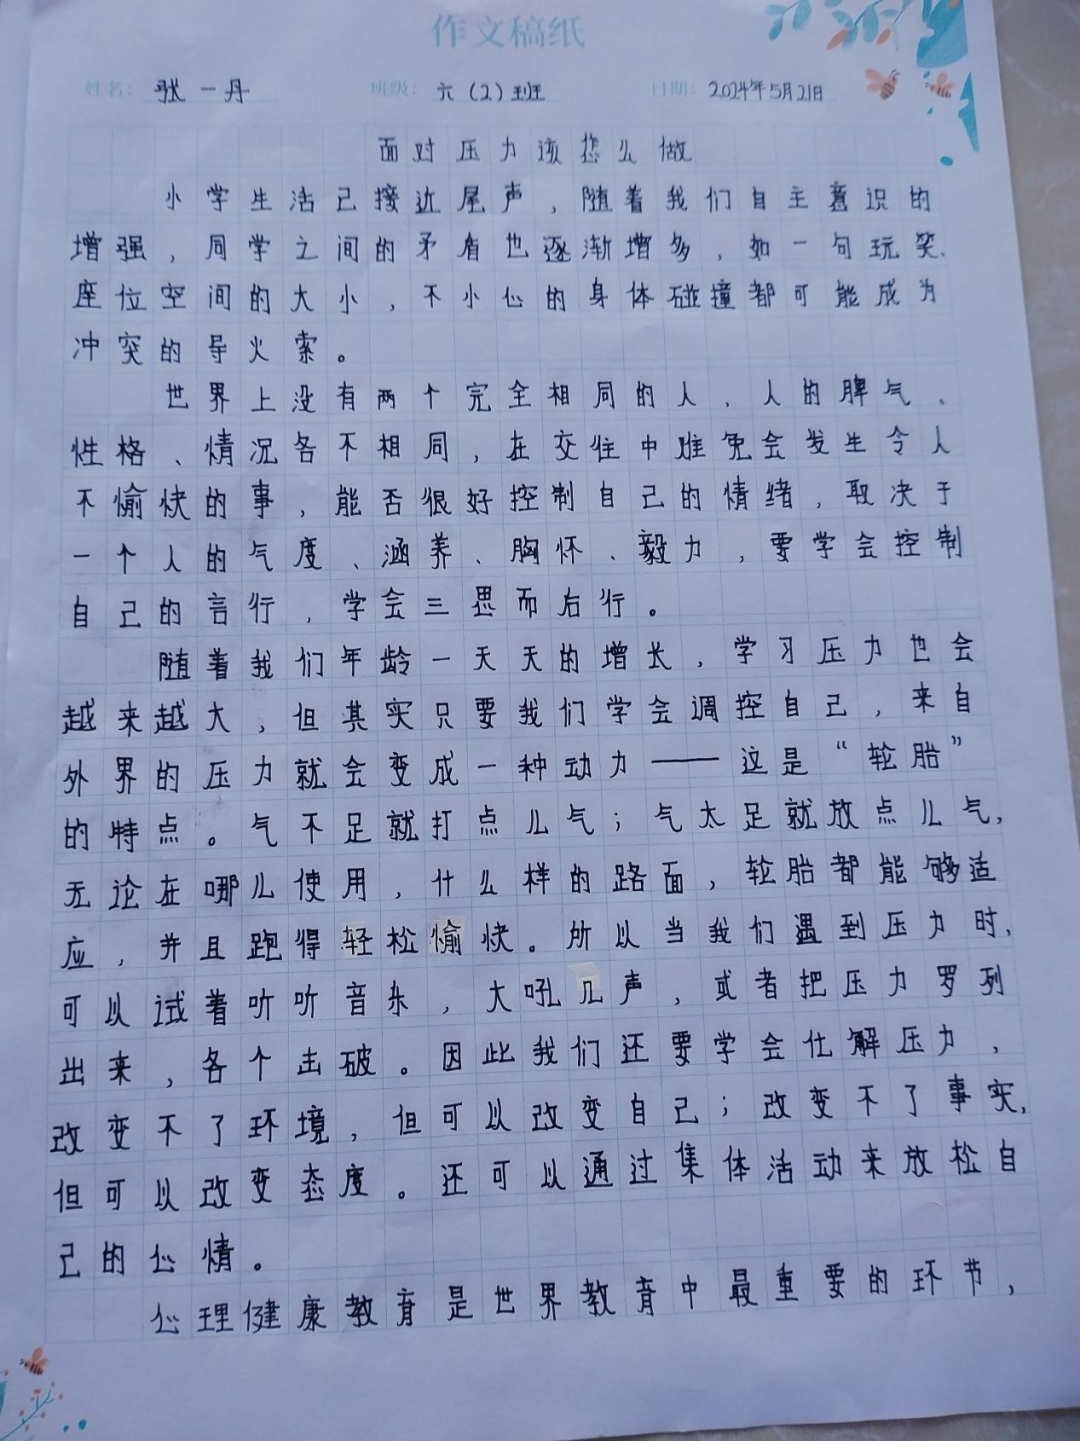 作文稿纸
姓名: 张一丹 班级: 六(2)班 日期: 2024年5月21日
面对压力该怎么做
小学生活已接近尾声，随着我们自主意识的
增强，同学之间的矛盾也逐渐增多，如一句玩笑、
座位空间的大小，不小心的身体碰撞都可能成为
冲突的导火索。
世界上没有两个完全相同的人，人的脾气、
性格、情况各不相同，在交往中难免会发生令人
不愉快的事，能否很好控制自己的情绪，取决于
一个人的气度、涵养、胸怀、毅力，要学会控制
自己的言行，学会三思而后行。
随着我们年龄一天天的增长，学习压力也会
越来越大，但其实只要我们学会调控自己，来自
外界的压力就会变成一种动力——这是“轮胎”
的特点。气不足就打点儿气；气太足就放点儿气，
无论在哪儿使用，什么样的路面，轮胎都能够适
应，并且跑得轻松愉快。所以当我们遇到压力时，
可以试着听听音乐，大吼几声，或者把压力罗列
出来，各个击破。因此我们还要学会化解压力，
改变不了环境，但可以改变自己；改变不了事实，
但可以改变态度。还可以通过集体活动来放松自
己的心情。
心理健康教育是世界教育中最重要的环节，